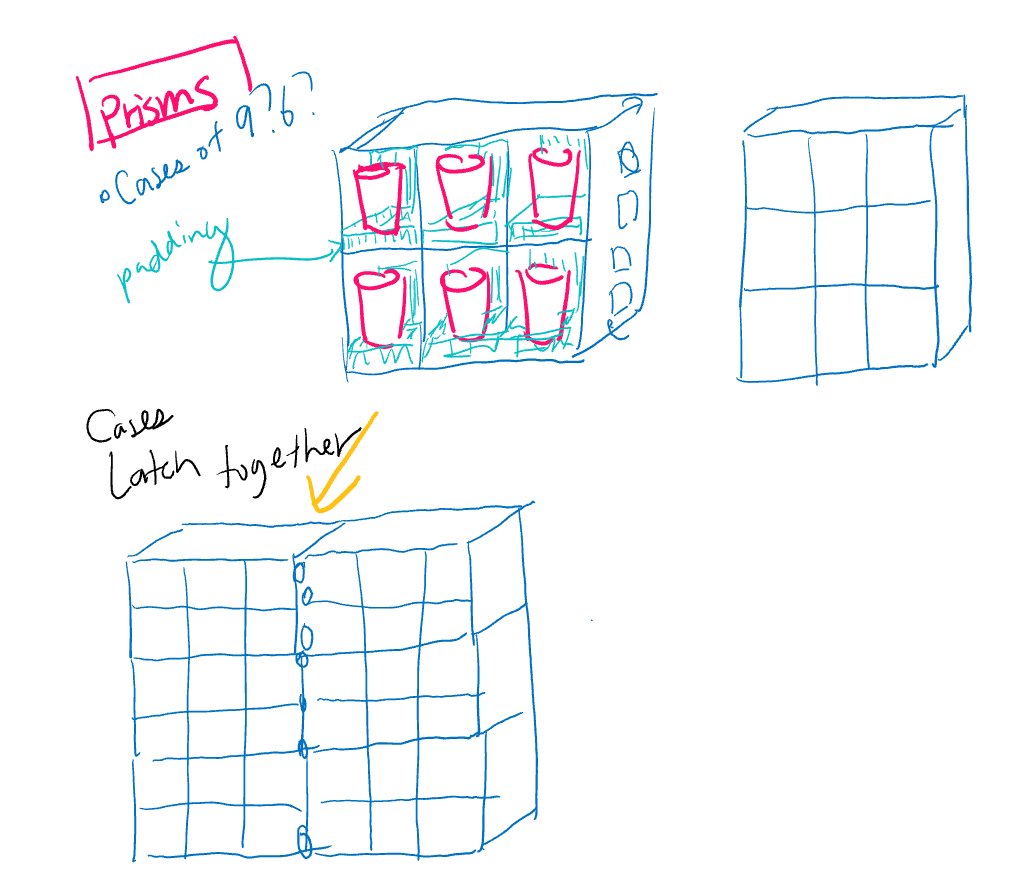 Prisms
Cases of 9? 6?
padding
Cases
Latch together